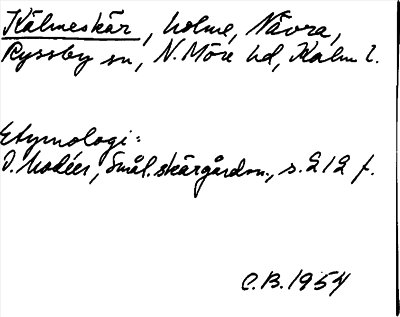 Kälmeskär, holme, Nävra,
Ryssby sn, N. Möre hd, Kalm l.
Etymologi:
I. Modéer, Smål. skärgårdsn., s. 212 f.
C.B. 1954